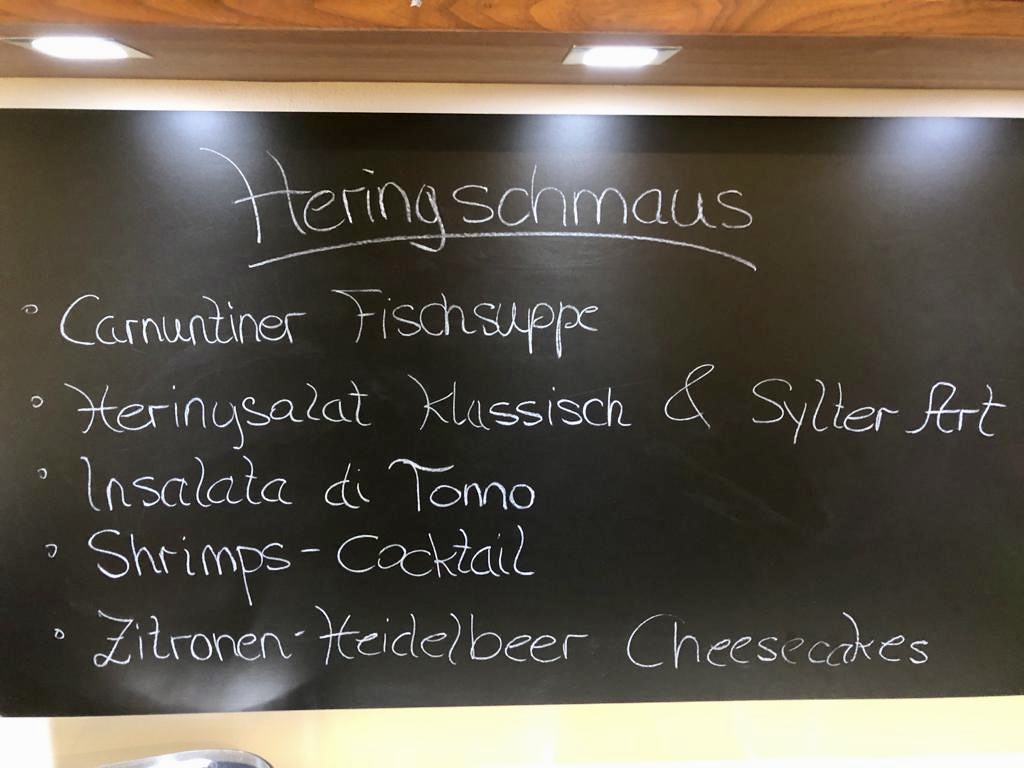 Heringschmaus
° Carnuntiner Fischsuppe
° Heringsalat Klassisch & Sylter Art
° Insalata di Tomo
° Shrimps-Cocktail
° Zitronen-Heidelbeer Cheesecakes